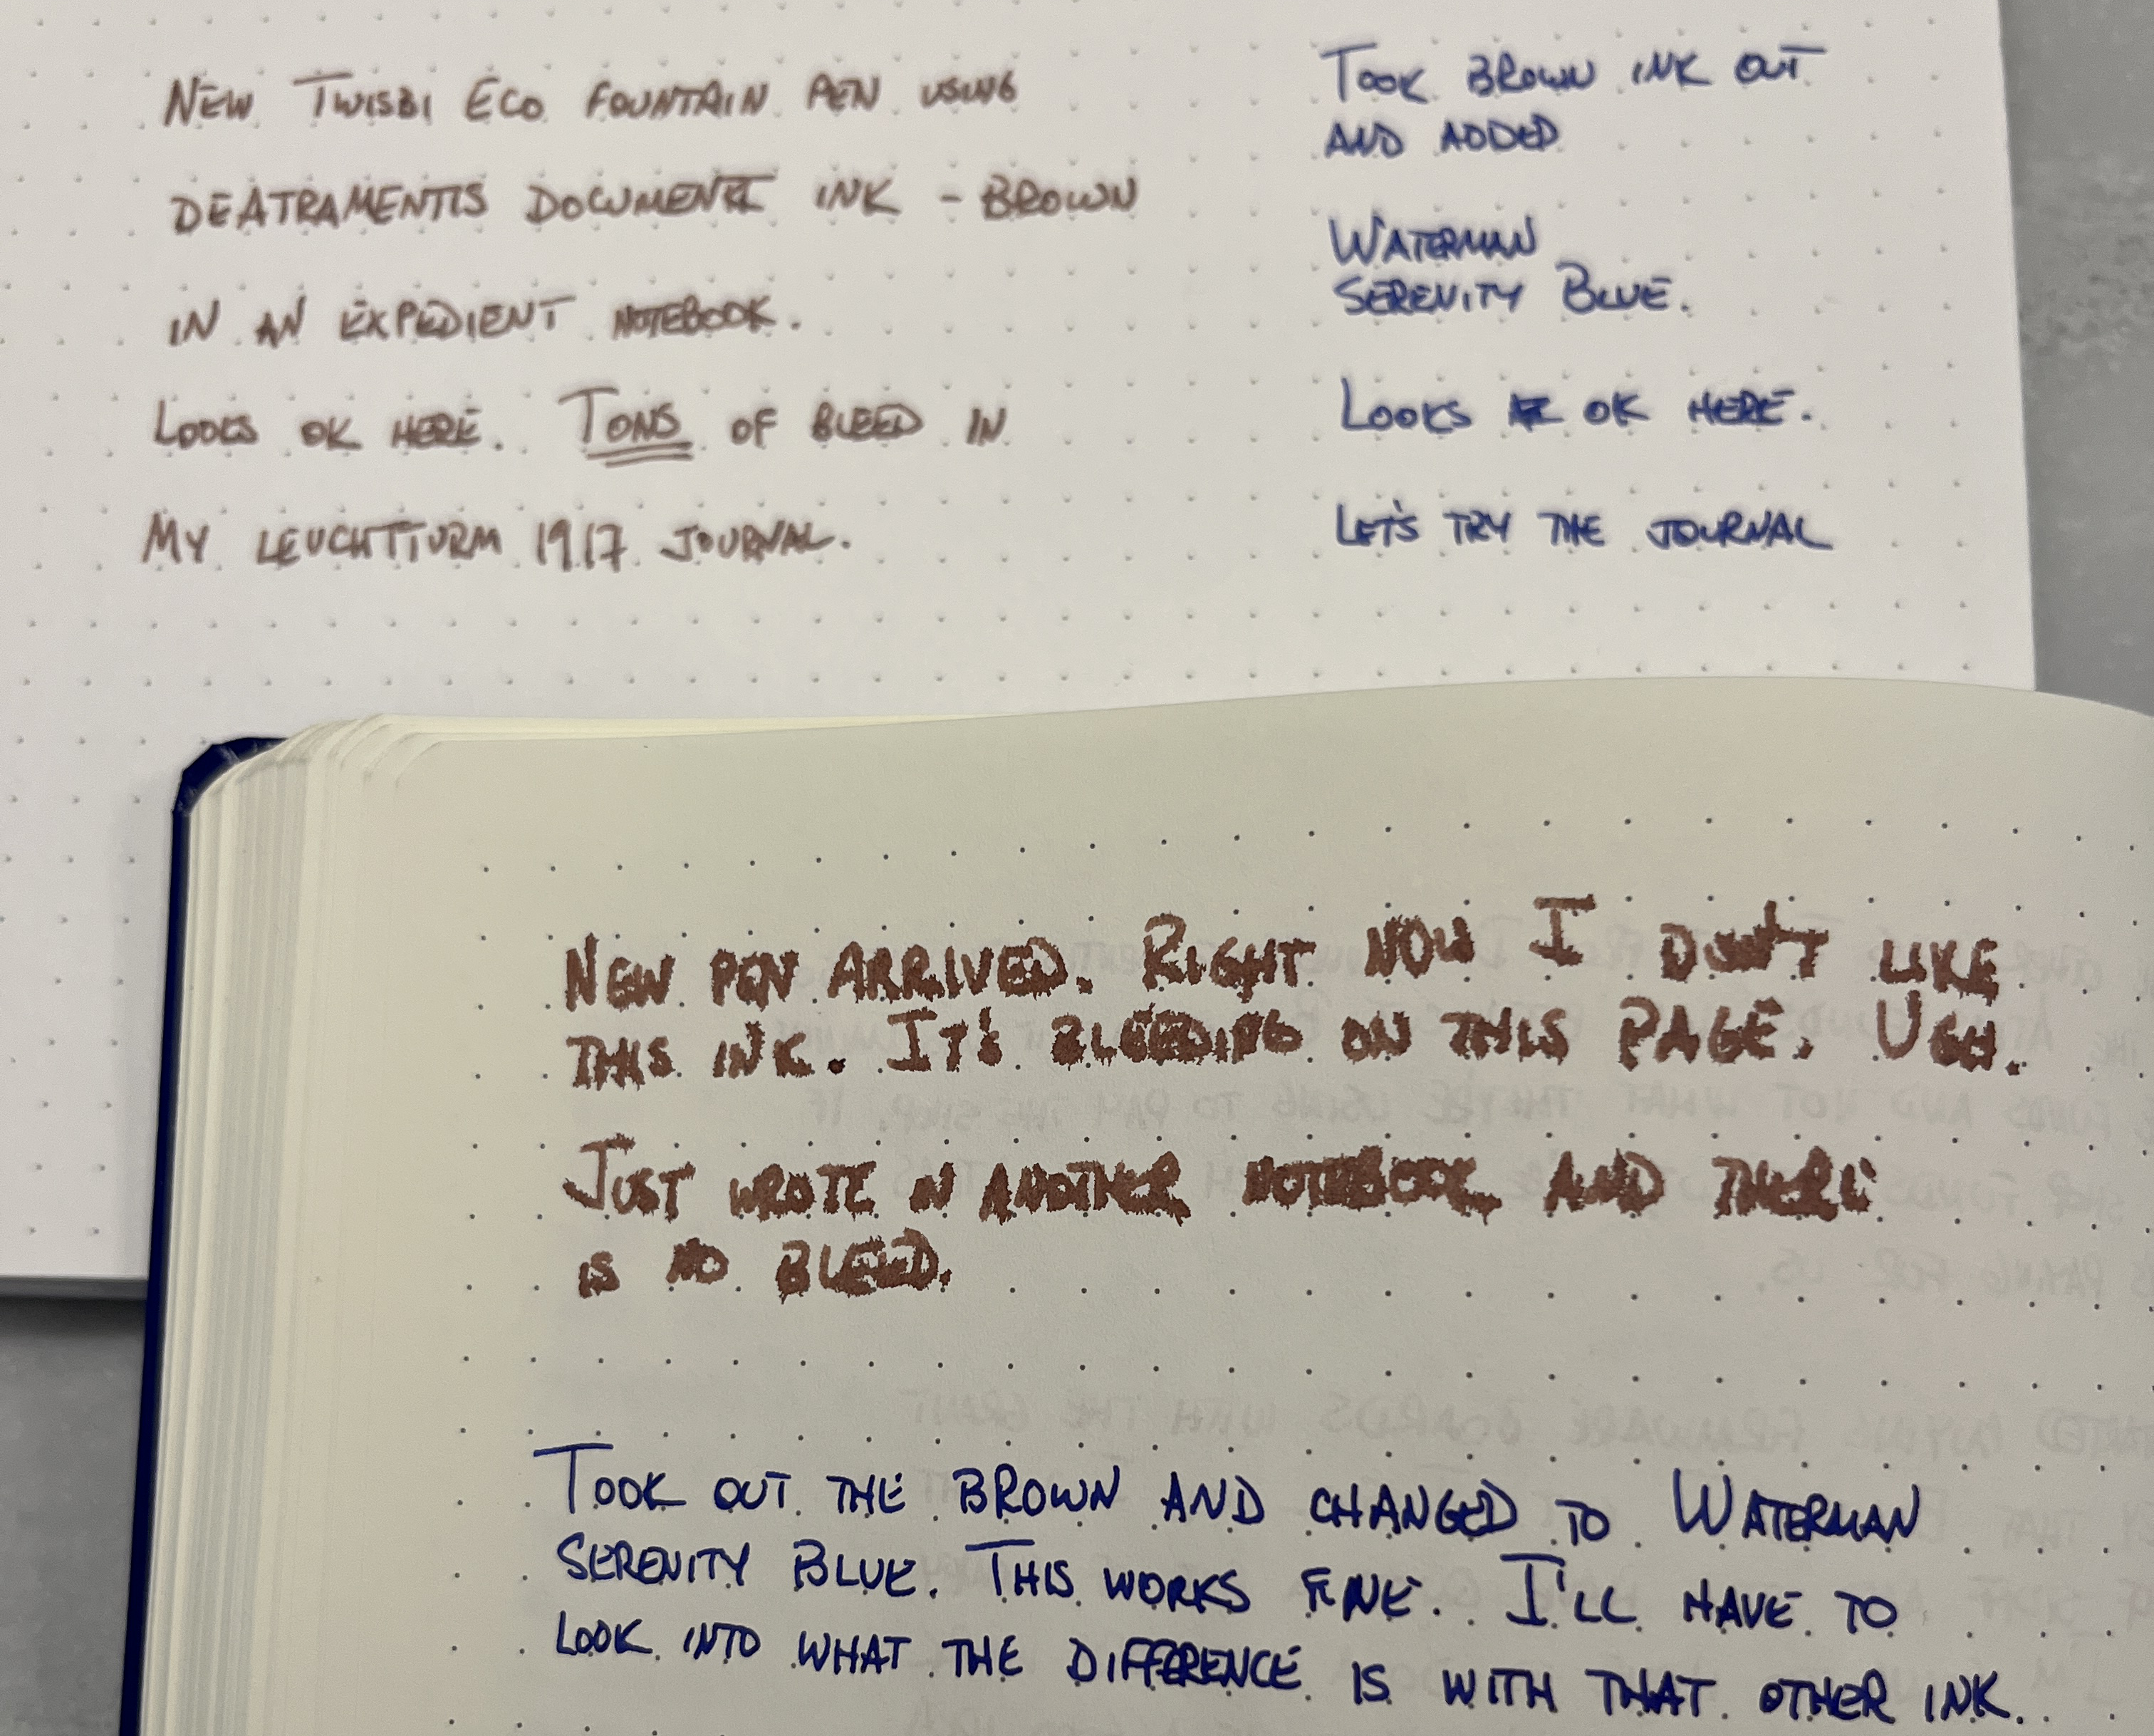 NEW TWISBI ECO FOUNTAIN PEN USING
DEATRAMENTIS DOCUMENT INK - BROWN
IN AN EXPEDIENT NOTEBOOK.
LOOKS OK HERE. TONS OF BLEED IN
MY LEUCHTTURM 1917 JOURNAL.
TOOK BROWN INK OUT
AND ADDED
WATERMAN
SERENITY BLUE.
LOOKS OK HERE.
LET'S TRY THE JOURNAL
NEW PEN ARRIVED. RIGHT NOW I DON'T LIKE
THIS INK. IT'S BLEEDING ON THIS PAGE. UGH.
JUST WROTE IN ANOTHER NOTEBOOK AND THERE
IS NO BLEED.
TOOK OUT THE BROWN AND CHANGED TO WATERMAN
SERENITY BLUE. THIS WORKS FINE. I'LL HAVE TO
LOOK INTO WHAT THE DIFFERENCE IS WITH THAT OTHER INK.